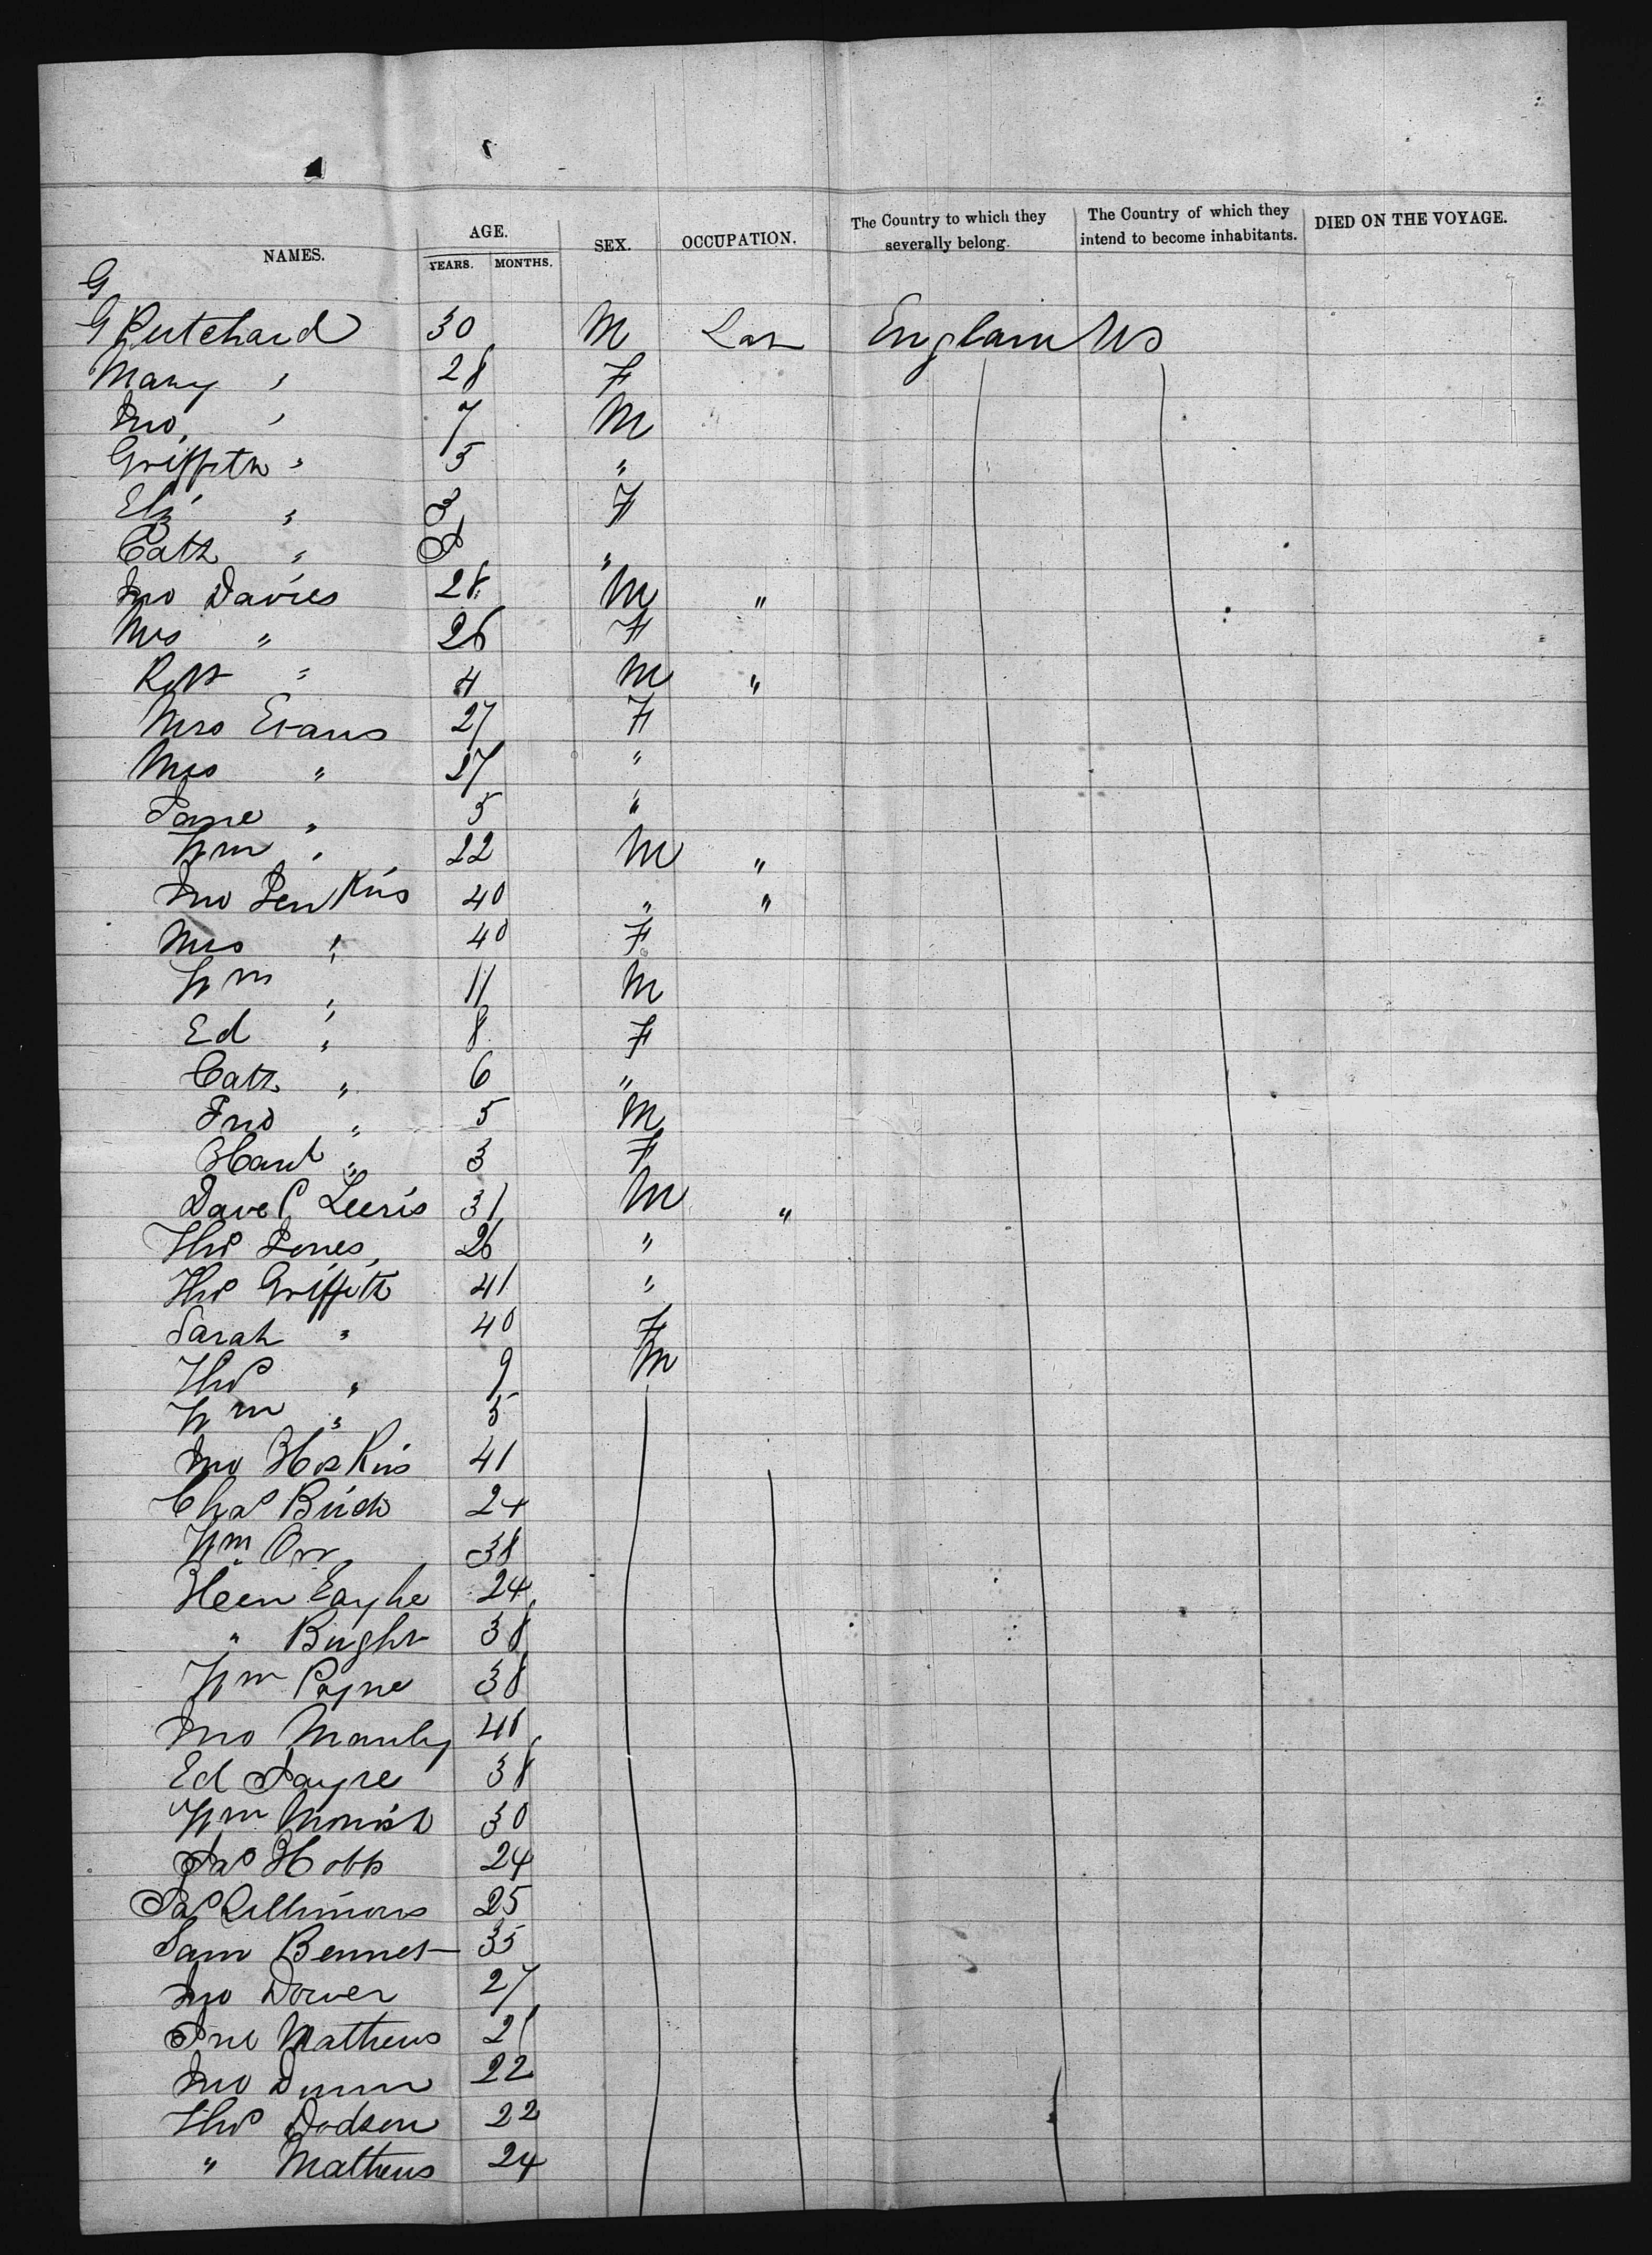 NAMES. AGE. YEARS. MONTHS. SEX. OCCUPATION. The Country to which they severally belong. The Country of which they intend to become inhabitants. DIED ON THE VOYAGE.
G
G Pritchard 30 M Lab England US
Mary " 28 F
Jno " 7 M
Griffith " 5 "
Eliz " 3 F
Cath " "
Jno Davies 28 M "
Mrs " 26 F
Robt " 4 M "
Mrs Evans 27 F
Mrs " 27 "
Jane " 5 "
Wm " 22 M "
Jno Jenkins 40 " "
Mrs " 40 F
Wm " 11 M
Ed " 8 F
Cath " 6 "
Jno " 5 M
Hanh " 3 F
Davd Lewis 31 M "
Thos Jones 26 "
Thos Griffith 41 "
Sarah " 40 F
Thos " 9 M
Wm " 5
Jno Hoskins 41
Chas 24
Wm Orr 38
24
" Bright 38
Wm Payne 38
Jno Manly
Ed Sayre 38
Wm 30
Jas Hobbs 24
Jas 25
Sam Bennet 35
Jno Dower 27
Mathews
Jno Dunn 22
Thos Dodson 22
" Mathews 24